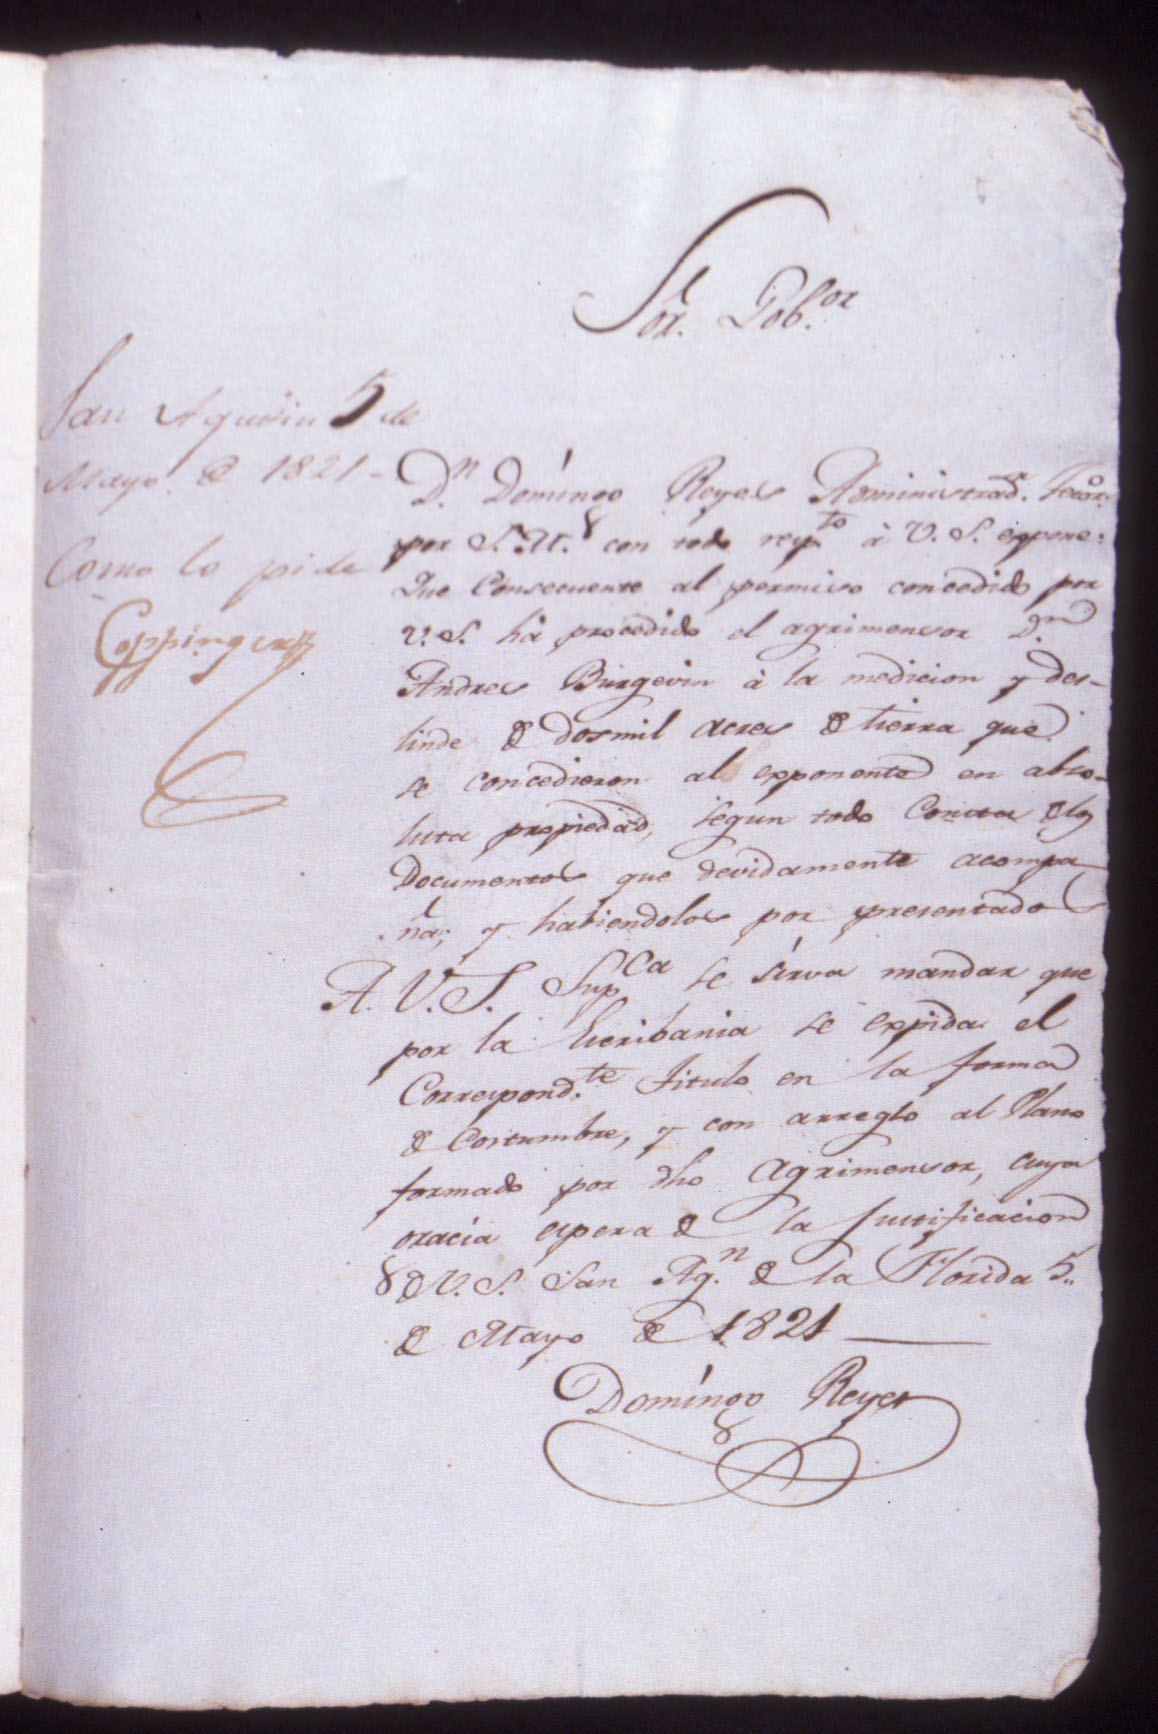 Sor. Gob.or
San Agustin 5 de
Mayo de 1821 -
Como lo pide
Coppinger
Dn. Domíngo Reyes Administrad.r Tesor.o
por S. M. con todo resp.to à V. S. expone:
Que Consecuente al permiso concedido por
V. S. há procedido el agrimensor D.n
Andres Burgevin à la medicion y des-
linde de dosmil acres de tierra que
se concedieron al exponente en abso-
luta propiedad, segun todo Consta de los
Documentos que devidamente acompa
ña; y habiendolos por presentado
A. V. S. Sup.ca se sírva mandar que
por la Escribania se expida el
Correspond.te titulo en la forma
de Costumbre, y con arreglo al Plano
formado por dho Agrimensor, cuya
gracia espera de la Justificacion
de V. S. San Ag.n de la Florida 5..
de Mayo de 1821
Domíngo Reyes